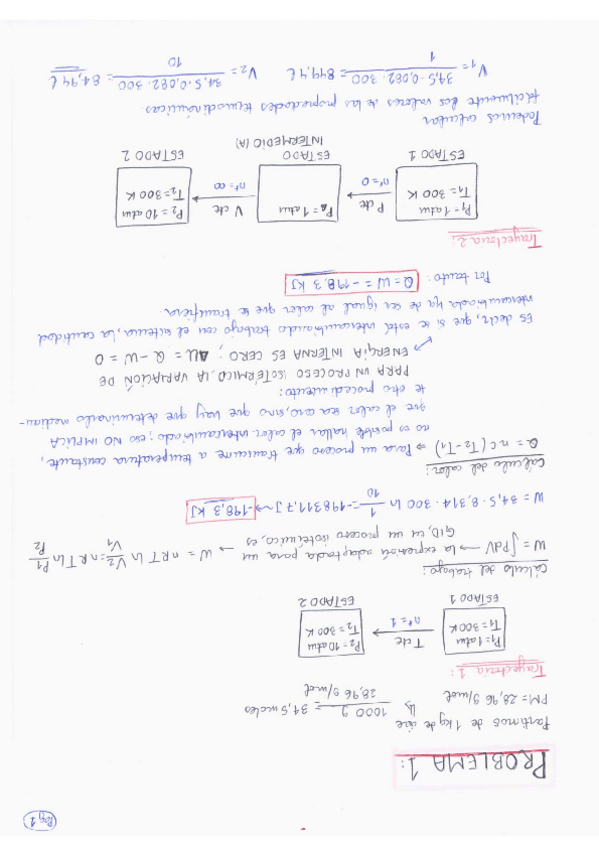 Pág 1
PROBLEMA 1:
Partimos de 1 kg de aire
PM = 28,96 g/mol ↳ 1000 g / 28,96 g/mol = 34,5 moles
Trayectoria 1:
P1 = 1 atm
T1 = 300 K
ESTADO 1
T cte
n* = 1
P2 = 10 atm
T2 = 300 K
ESTADO 2
Cálculo del trabajo:
W = ∫ PdV → la expresión adaptada para un
GID, en un proceso isotérmico, es → W = nRT ln V2/V1 = nRT ln P1/P2
W = 34,5 · 8,314 · 300 ln 1/10 = -198311,7 J ~→ -198,3 kJ
Cálculo del calor:
Q = n c (T2 - T1) → Para un proceso que transcurre a temperatura constante,
no es posible hallar el calor intercambiado; eso NO IMPLICA
que el calor sea cero, sino que hay que determinarlo median-
te otro procedimiento:
PARA UN PROCESO ISOTÉRMICO, LA VARIACIÓN DE
ENERGÍA INTERNA ES CERO: ΔU = Q - W = 0
Es decir, que si se está intercambiando trabajo con el sistema, la cantidad
intercambiada ya de ser igual al calor que se transfiera.
Por tanto: Q = W = -198,3 kJ
Trayectoria 2:
P1 = 1 atm
T1 = 300 K
ESTADO 1
P cte
n* = 0
PA = 1 atm
ESTADO
INTERMEDIO (A)
V cte
n* = ∞
P2 = 10 atm
T2 = 300 K
ESTADO 2
Podemos calcular
fácilmente los valores de las propiedades termodinámicas
V1 = 34,5 · 0,082 · 300 / 1 = 849,4 l V2 = 34,5 · 0,082 · 300 / 10 = 84,94 l